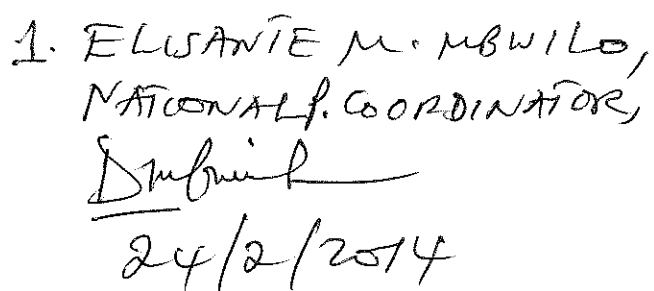 1. ELISANTE M. MBWILO,
NATIONAL P. COORDINATOR,
24/2/2014